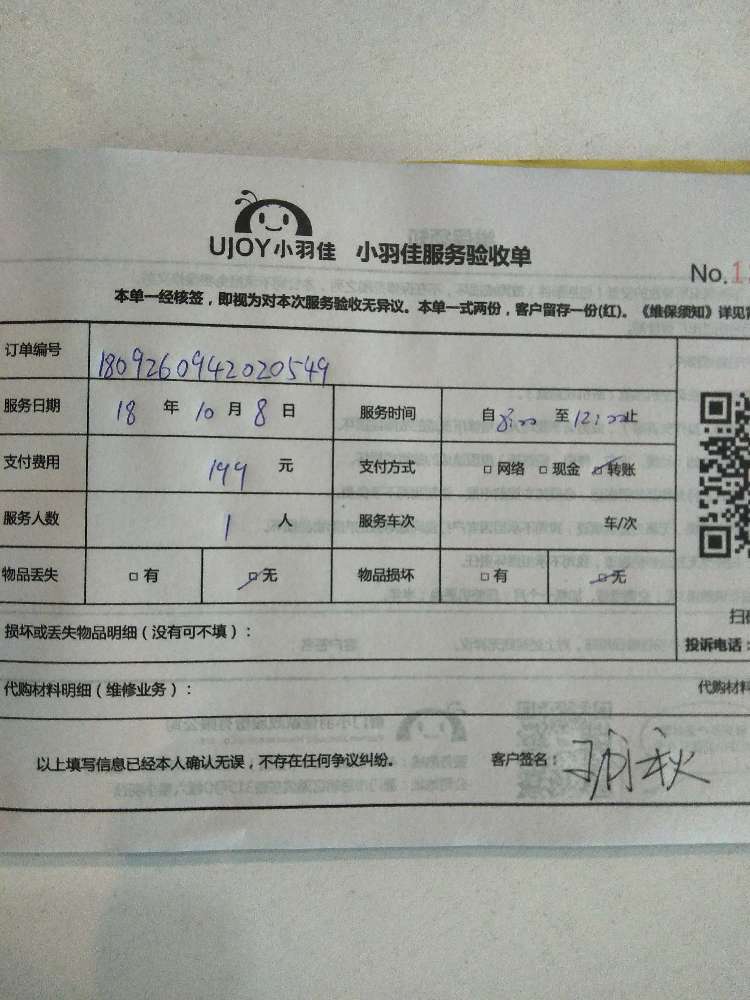 UJOY小羽佳 小羽佳服务验收单
No.1
本单一经核签，即视为对本次服务验收无异议。本单一式两份，客户留存一份(红)。《维保须知》详见
订单编号 1809260942020549
服务日期 18 年 10 月 8 日 服务时间 自 8:00 至 12:00 止
支付费用 199 元 支付方式 □网络 □现金 ☑转账
服务人数 1 人 服务车次 车/次
物品丢失 □有 ☑无 物品损坏 □有 ☑无
扫
损坏或丢失物品明细（没有可不填）：
投诉电话：
代购材料明细（维修业务）：
代购材料
以上填写信息已经本人确认无误，不存在任何争议纠纷。 客户签名：